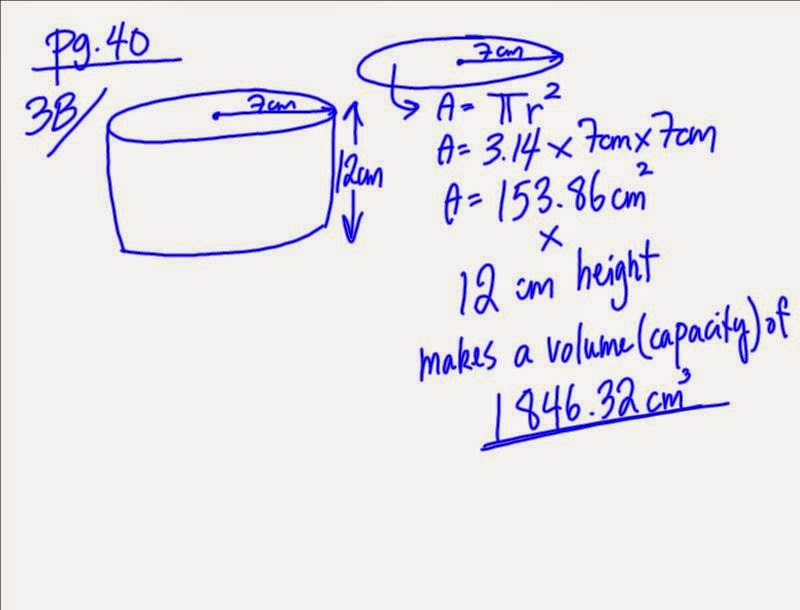 pg.40
3B/
7cm
12cm
7cm
A = πr²
A = 3.14 × 7cm × 7cm
A = 153.86 cm²
×
12 cm height
makes a volume (capacity) of
1846.32 cm³